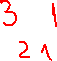 3 1
2 1